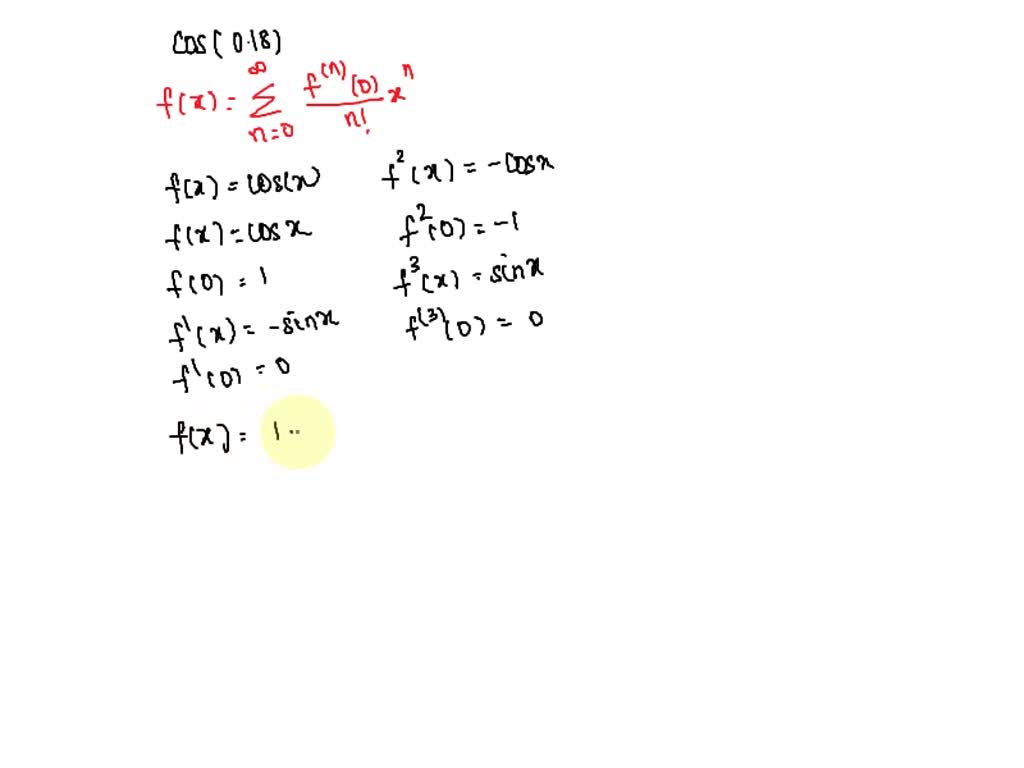 cos(0.18)
f(x) = ∞ Σ n=0 f^(n)(0) / n! x^n
f(x) = cos(x)
f(x) = cos x
f(0) = 1
f'(x) = -sin x
f'(0) = 0
f²(x) = -cos x
f²(0) = -1
f³(x) = sin x
f^(3)(0) = 0
f(x) = 1 ..